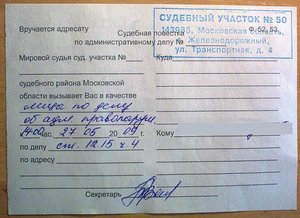 Вручается адресату
Судебная повестка
по административному делу №
СУДЕБНЫЙ УЧАСТОК № 50
143985, Московская область
Железнодорожный,
ул. Транспортная, д. 4
Ф. 52, 53
Мировой судья суд. участка №
Куда
судебного района Московской
области вызывает Вас в качестве
лица по делу
об адм правонаруш
14 00 час. 27 05 2009 г.
Кому
по делу ст. 12.15 ч. 4
по адресу
Секретарь